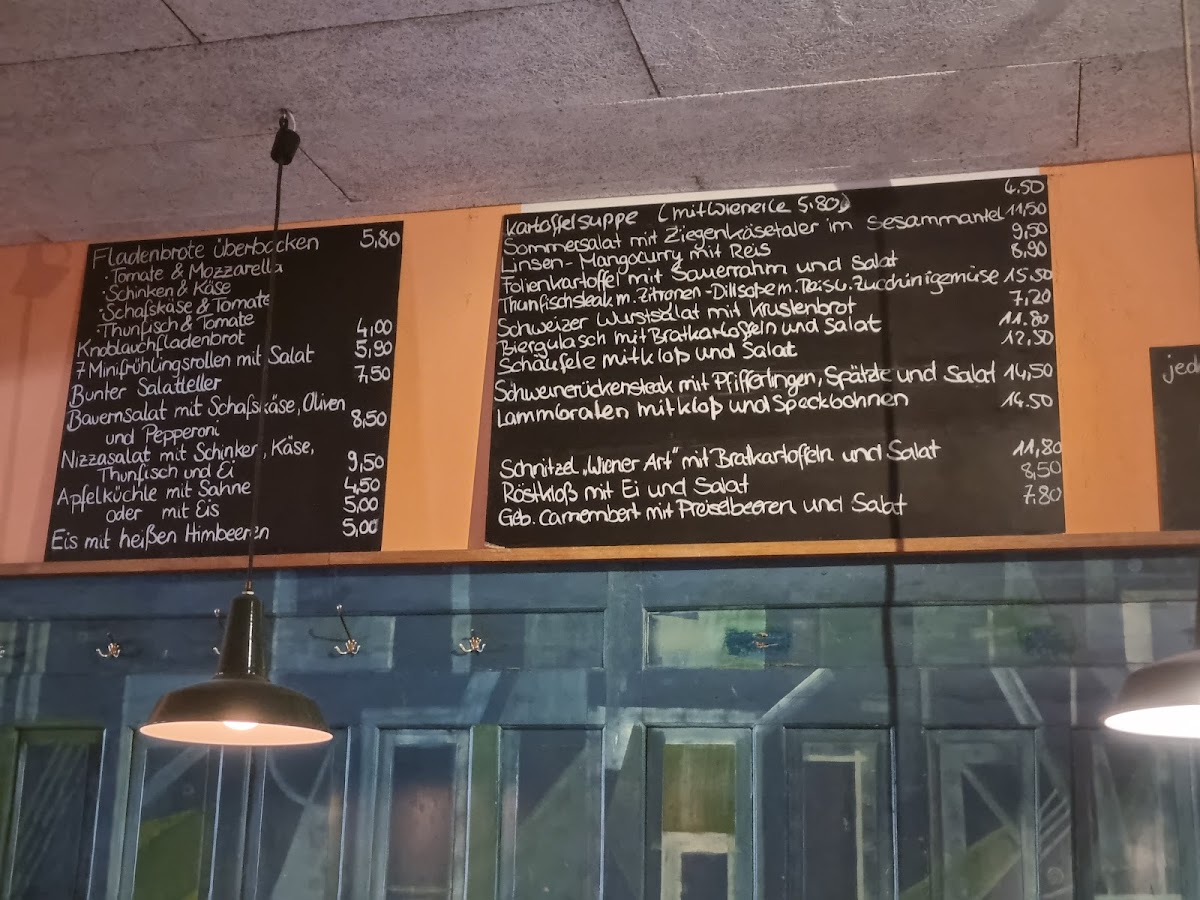 Fladenbrote überbacken 5,80
· Tomate & Mozzarella
· Schinken & Käse
· Schafskäse & Tomate
· Thunfisch & Tomate
Knoblauchfladenbrot 4,00
7 Minifrühlingsrollen mit Salat 5,90
Bunter Salatteller 7,50
Bauernsalat mit Schafskäse, Oliven
und Pepperoni 8,50
Nizzasalat mit Schinken, Käse,
Thunfisch und Ei 9,50
Apfelküchle mit Sahne 4,50
oder mit Eis 5,00
Eis mit heißen Himbeeren 5,00
Kartoffelsuppe (mit Wienerle 5.80) 4.50
Sommersalat mit Ziegenkäsetaler im Sesammantel 11,50
Linsen-Mangocurry mit Reis 9,50
Folienkartoffel mit Sauerrahm und Salat 8,90
Thunfischsteak m. Zitronen-Dillsoße m. Reis u. Zucchinigemüse 15.50
Schweizer Wurstsalat mit Krustenbrot 7,20
Biergulasch mit Bratkartoffeln und Salat 11.80
Schäufele mit Kloß und Salat 12,50
Schweinerückensteak mit Pfifferlingen, Spätzle und Salat 14,50
Lammbraten mit Kloß und Speckbohnen 14.50
Schnitzel „Wiener Art" mit Bratkartoffeln und Salat 11,80
Röstkloß mit Ei und Salat 8,50
Geb. Camembert mit Preiselbeeren und Salat 7.80